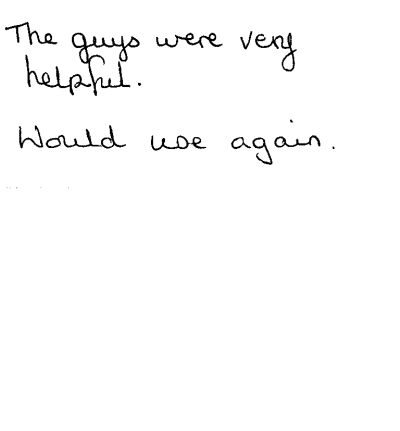 The guys were very
helpful.
Would use again.